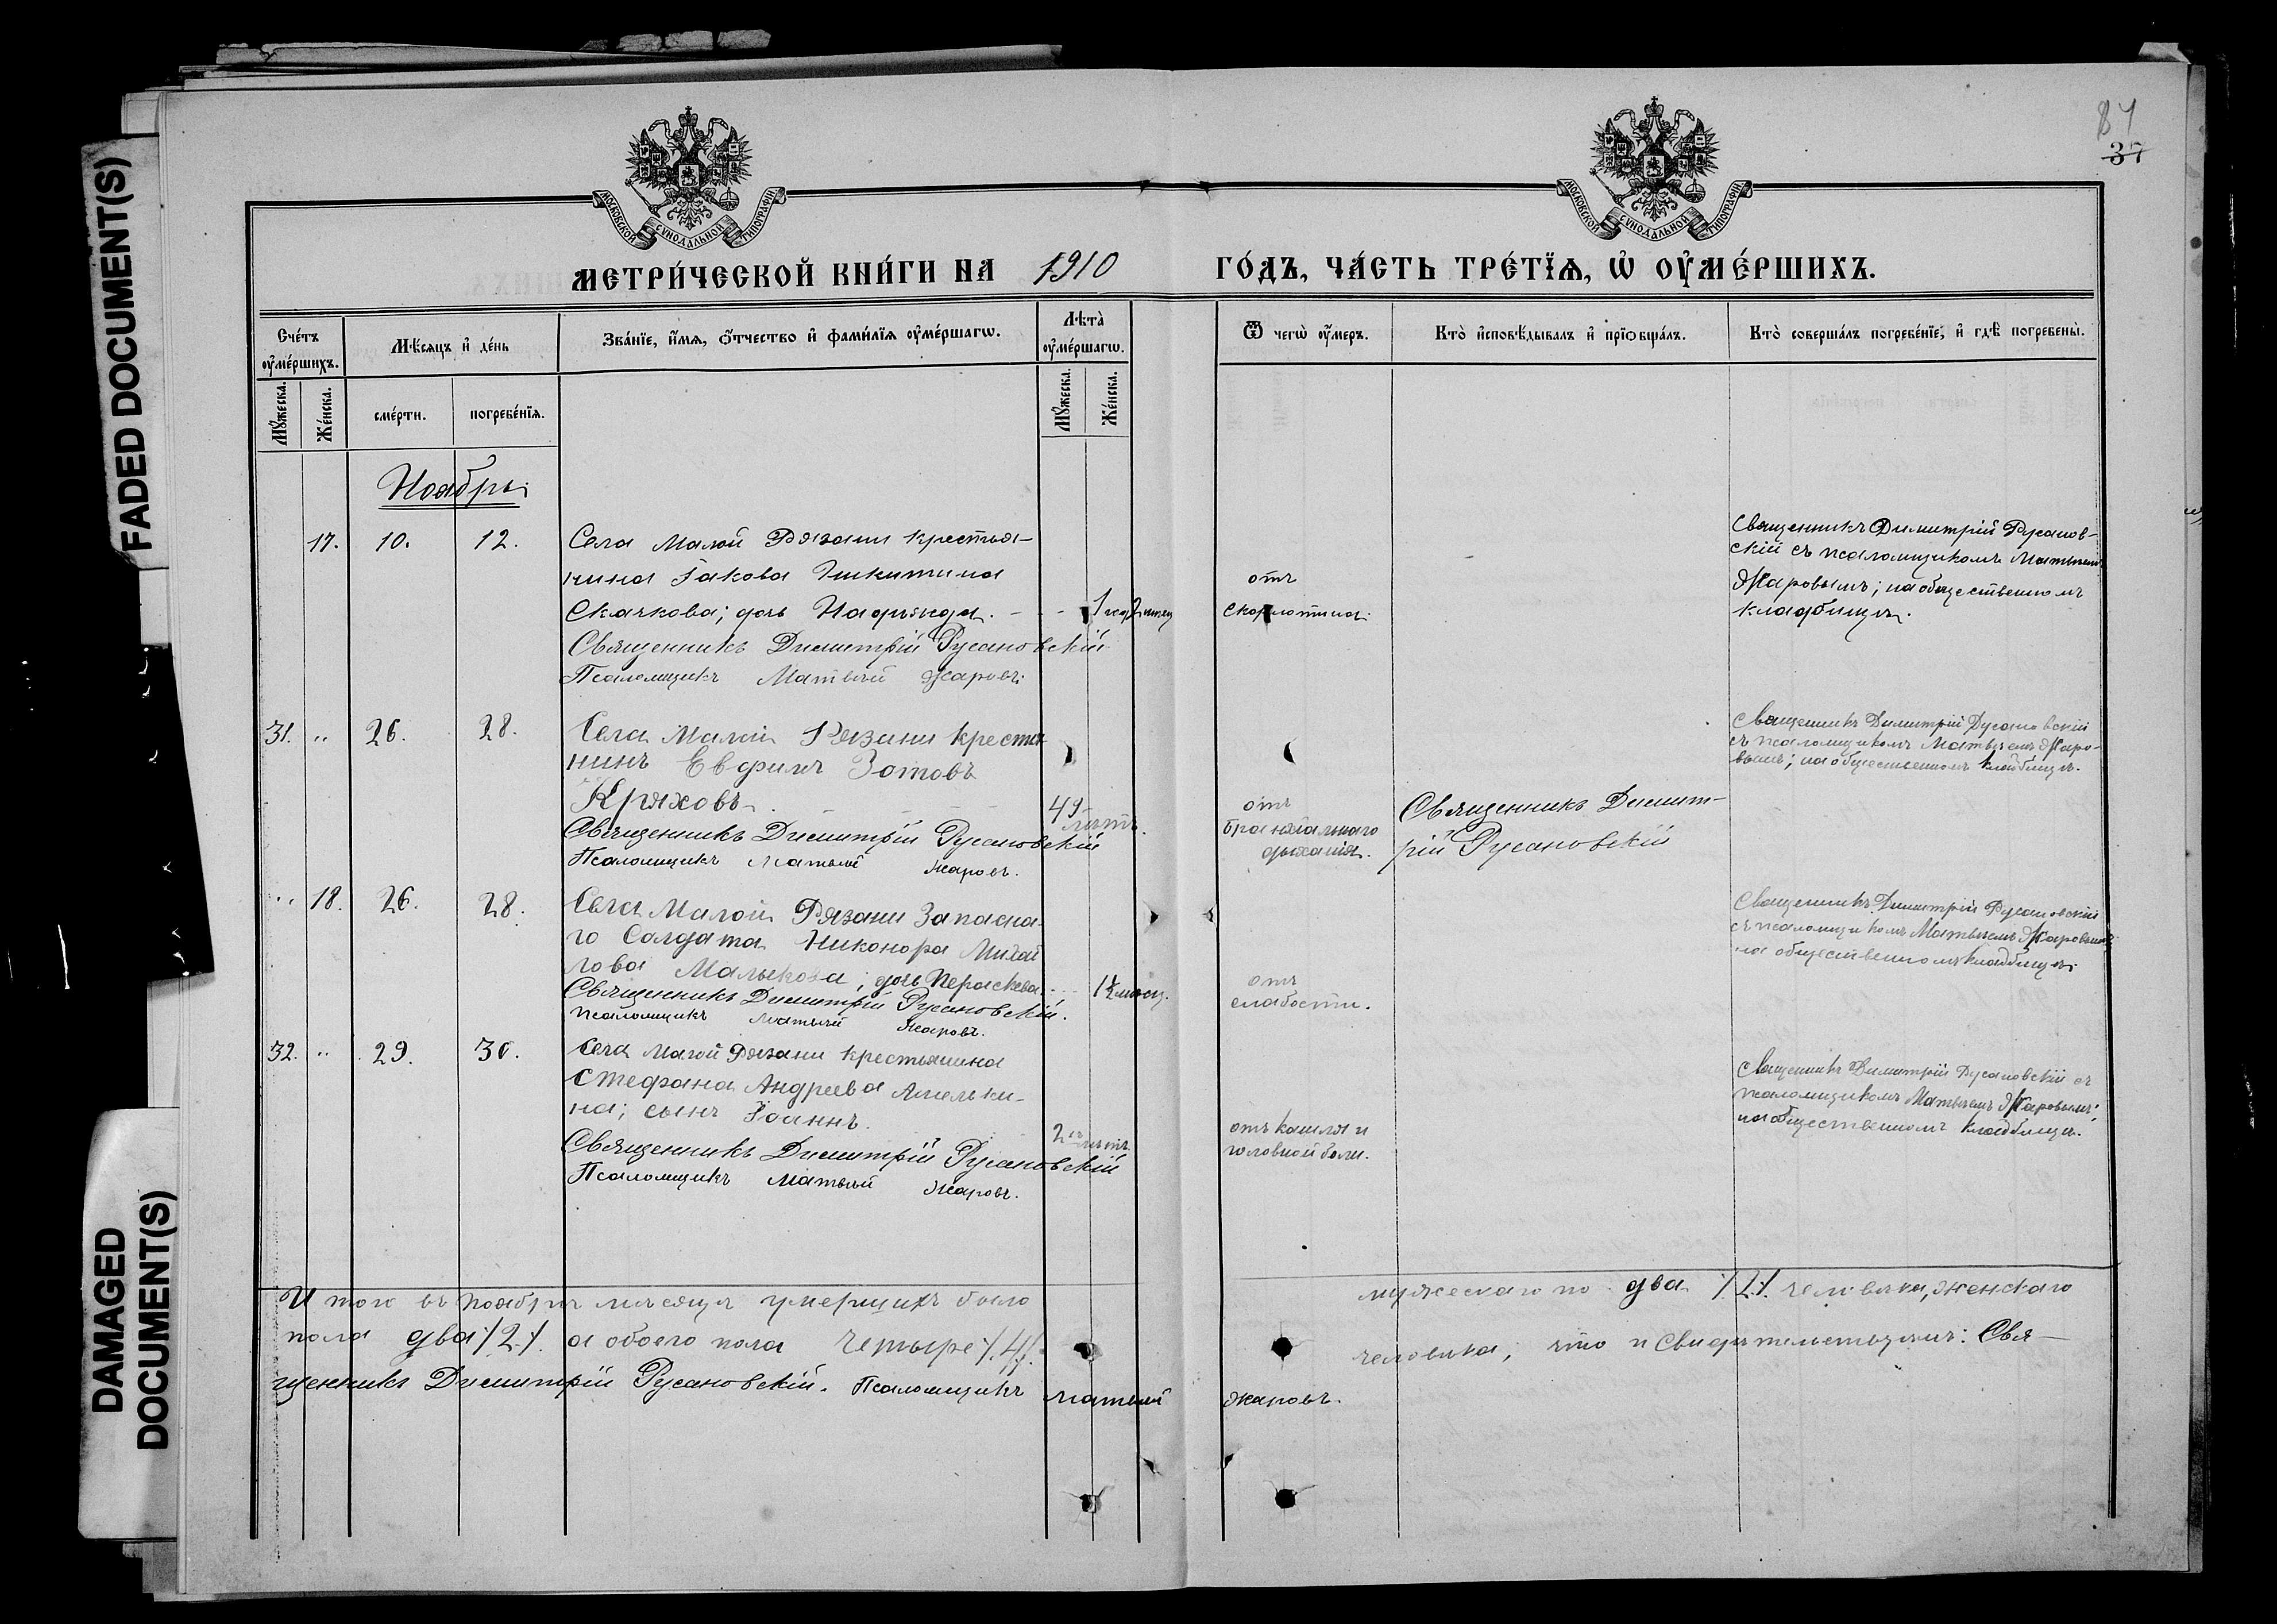 FADED DOCUMENT(S)
DAMAGED
DOCUMENT(S)
МОСКОВСКОЙ СѴНОДАЛЬНОЙ ТИПОГРАФІИ
МОСКОВСКОЙ СѴНОДАЛЬНОЙ ТИПОГРАФІИ
87
37
МЕТРИ́ЧЕСКОЙ КНИ́ГИ НА 1910 ГО́ДЪ, ЧА́СТЬ ТРЕ́ТЇѦ, Ѡ҆ ОУ҆МЕ́РШИХЪ.
Сче́тъ оу҆ме́ршихъ.
Мѣ́сяцъ и҆ де́нь
Зва́нїе, и҆́мѧ, ѻ҆́тчество и҆ фами́лїѧ оу҆ме́ршагѡ.
Лѣта̀ оу҆ме́ршагѡ.
Ѿ чегѡ̀ оу҆́меръ.
Кто̀ и҆сповѣ́дывалъ и҆ прїѻбща́лъ.
Кто̀ соверша́лъ погребе́нїе, и҆ гдѣ̀ погребены̀.
Мꙋ́жеска.
Же́нска.
сме́рти.
погребе́нїѧ.
Мꙋ́жеска.
Же́нска.
Ноябрь
17. 10. 12.
Села Малой Рязани крестья-
нина Іакова Никитина
Скачкова; дочь Надежда. - - 1
Священникъ Димитрій Русановскій
Псаломщикъ Матвѣй Жаровъ
отъ
скарлотина.
Священникъ Димитрій Русанов-
скій съ псаломщикомъ Матвѣемъ
Жаровымъ; на общественномъ
кладбищѣ.
31. " 26. 28.
Села Малой Рязани крестья
нинъ Евфимъ Зотовъ
Кряховъ. - - - 49
лѣтъ.
Священникъ Димитрій Русановскій
Псаломщикъ Матвѣй Жаровъ.
отъ
дыханія.
Священникъ Димит-
рій Русановскій
Священникъ Димитрій Русановскій
съ псаломщикомъ Матвѣемъ Жаро-
вымъ; на общественномъ кладбищѣ.
" 18. 26. 28.
Села Малой Рязани запасна-
го солдата Никонора Михай
лова Малыкова; дочь Пераскева. - - 1½ мѣсяц.
Священникъ Димитрій Русановскій.
Псаломщикъ Матвѣй Жаровъ.
отъ
слабости.
Священникъ Димитрій Русановскій
съ псаломщикомъ Матвѣемъ Жаровымъ
на общественномъ кладбищѣ
32. " 29. 30.
Села Малой Рязани крестьянина
Стефана Андреева Амельки-
на; сынъ Іоаннъ.
2 лѣтъ.
Священникъ Димитрій Русановскій
Псаломщикъ Матвѣй Жаровъ.
отъ кашля и
головной боли.
Священникъ Димитрій Русановскій съ
псаломщикомъ Матвѣемъ Жаровымъ;
на общественномъ кладбищѣ.
Итого въ ноябрѣ мѣсяцѣ умершихъ было мужескаго по два /2/. человѣка, женскаго
пола два /2/. а обоего пола четыре /4/. человѣка, что и свидѣтельствуемъ: Свя-
щенникъ Димитрій Русановскій. Псаломщикъ Матвѣй Жаровъ.